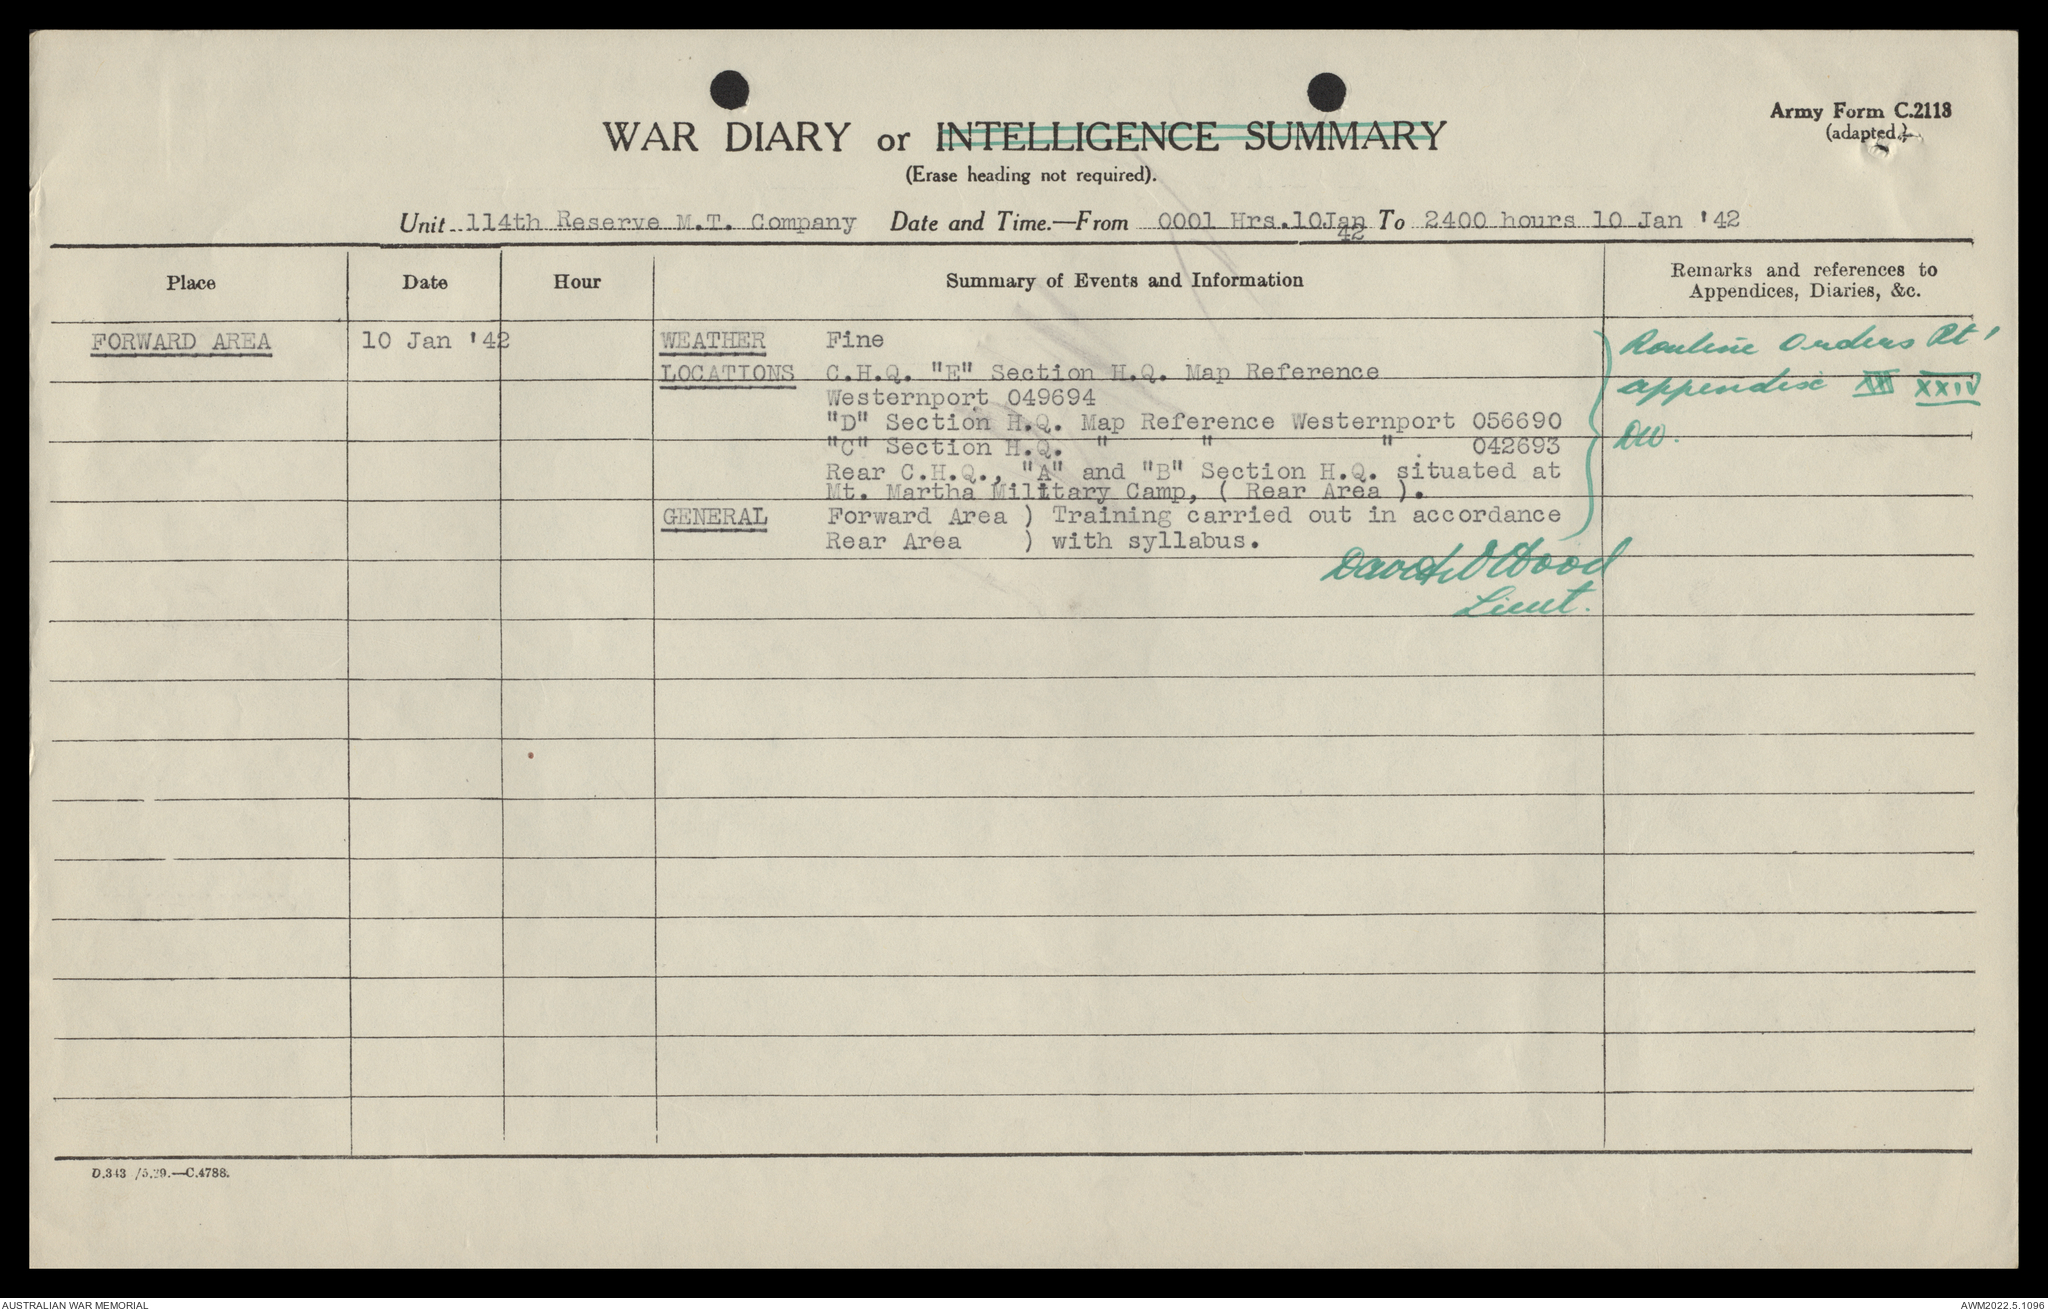 Army Form C.2118
(adapted.)
WAR DIARY or INTELLIGENCE SUMMARY
(Erase heading not required).
Unit 114th Reserve M.T. Company Date and Time.—From 0001 Hrs.10Jan 42 To 2400 hours 10 Jan '42
Place Date Hour Summary of Events and Information Remarks and references to Appendices, Diaries, &c.
FORWARD AREA 10 Jan '42 WEATHER Fine
LOCATIONS C.H.Q. "E" Section H.Q. Map Reference
Westernport 049694
"D" Section H.Q. Map Reference Westernport 056690
"C" Section H.Q. " " " 042693
Rear C.H.Q., "A" and "B" Section H.Q. situated at
Mt. Martha Military Camp, ( Rear Area ).
GENERAL Forward Area ) Training carried out in accordance
Rear Area ) with syllabus.
Routine Orders Pt 1
appendise XXIV
DW.
Wood
Lieut.
D.343 /5.39.—C.4788.
AUSTRALIAN WAR MEMORIAL
AWM2022.5.1096